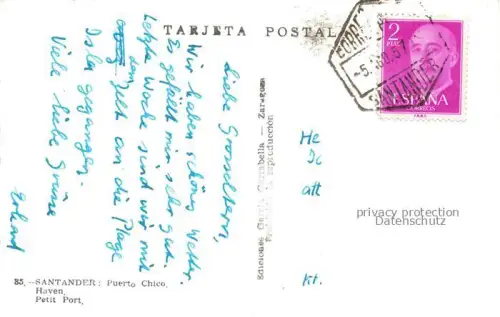 TARJETA POSTAL
Liebe Grosseltern,
Wir haben schönes Wetter.
Es gefällt mir sehr gut.
Letzte Woche sind wir mit
dem Zelt an die Plage
Isla gegangen.
Viele liebe Grüsse
Erhard
Ediciones García Garrabella — Zaragoza
Prohibida la reproducción
He
att
kt.
CORREOS
SANTANDER
2
PTAS
ESPAÑA
CORREOS
privacy protection
Datenschutz
85.—SANTANDER: Puerto Chico.
Haven.
Petit Port.